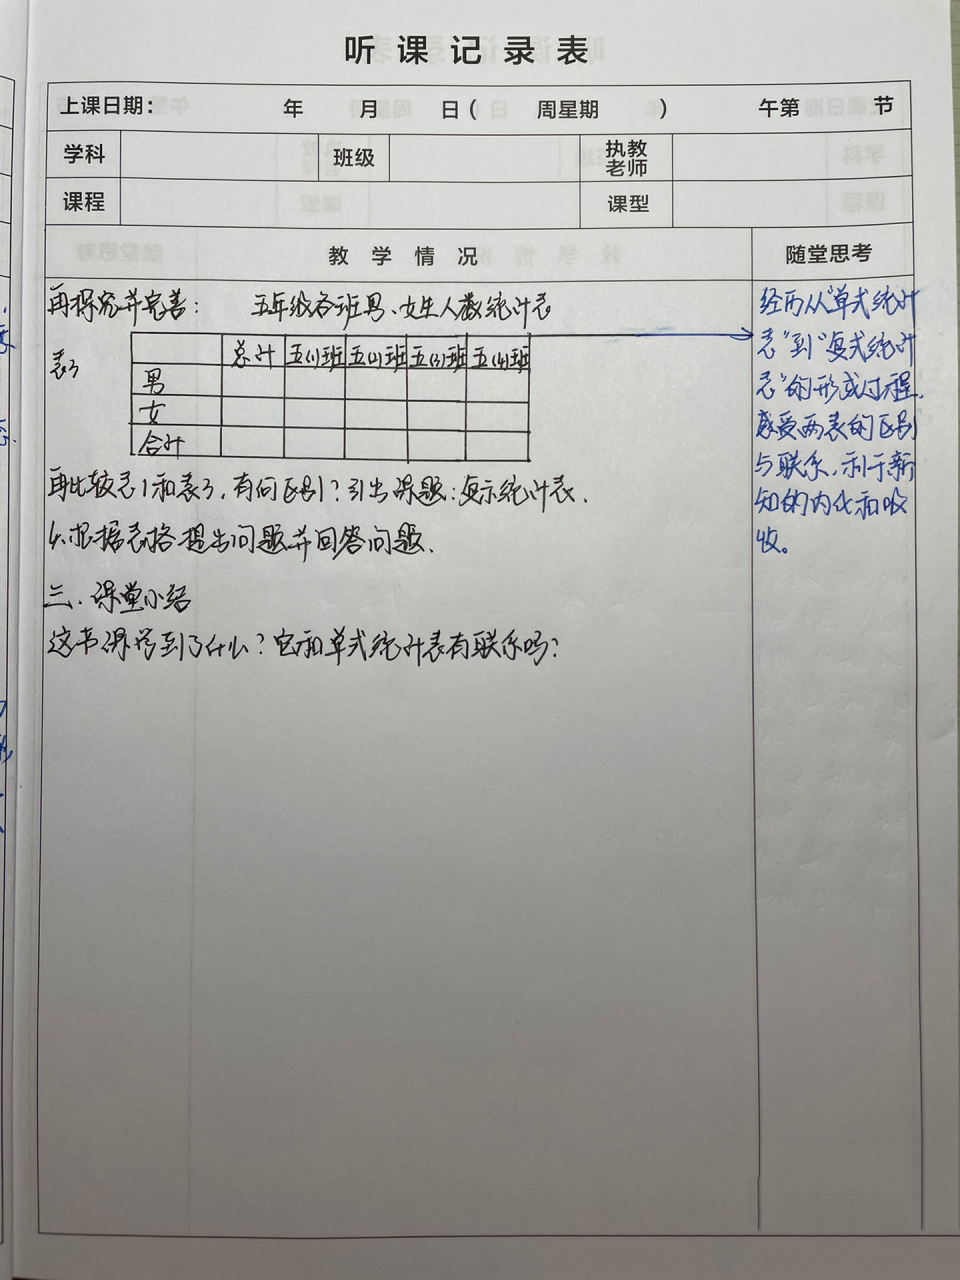 听课记录表
上课日期： 年 月 日（ 周星期 ） 午第 节
学科 班级 执教老师
课程 课型
教学情况 随堂思考
再探究并完善： 五年级各班男、女生人数统计表
表3
总计 五(1)班 五(2)班 五(3)班 五(4)班
男
女
合计
再比较表1和表3，有何区别？引出课题：复示统计表．
4.根据表格提出问题并回答问题．
三．课堂小结
这节课学到了什么？它和单式统计表有联系吗？
经历从“单式统计
表”到“复式统计
表”的形成过程．
感受两表的区别
与联系．利于新
知的内化和吸
收。